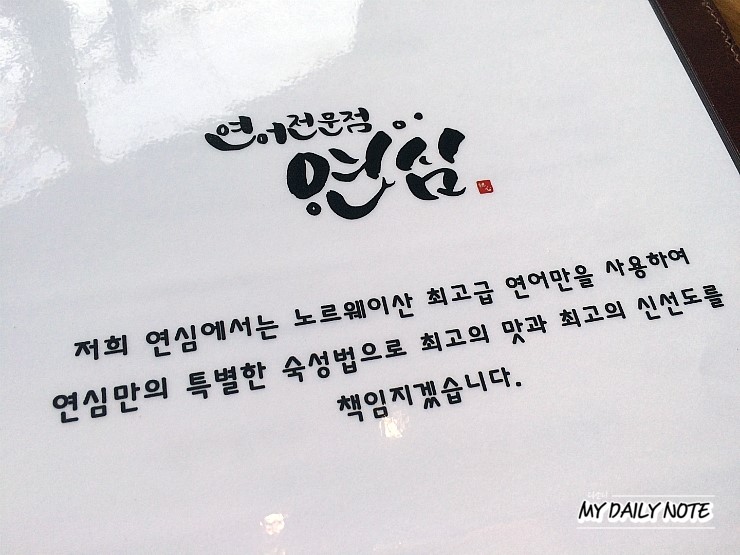 연어전문점
연심
저희 연심에서는 노르웨이산 최고급 연어만을 사용하여
연심만의 특별한 숙성법으로 최고의 맛과 최고의 신선도를
책임지겠습니다.
MY DAILY NOTE